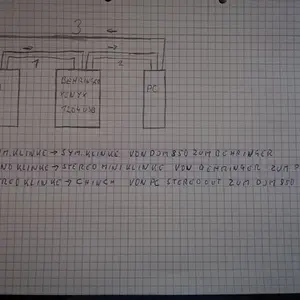 3
1 BEHRINGER 2 PC
XENYX
1204USB
M.KLINKE → SYM.KLINKE VON DJM 850 ZUM BEHRINGER
NOKLINKE → STEREO MINIKLINKE VON BEHRINGER ZUM P
EREOKLINKE → CHINCH VON PC STEREO OUT ZUM DJM 850